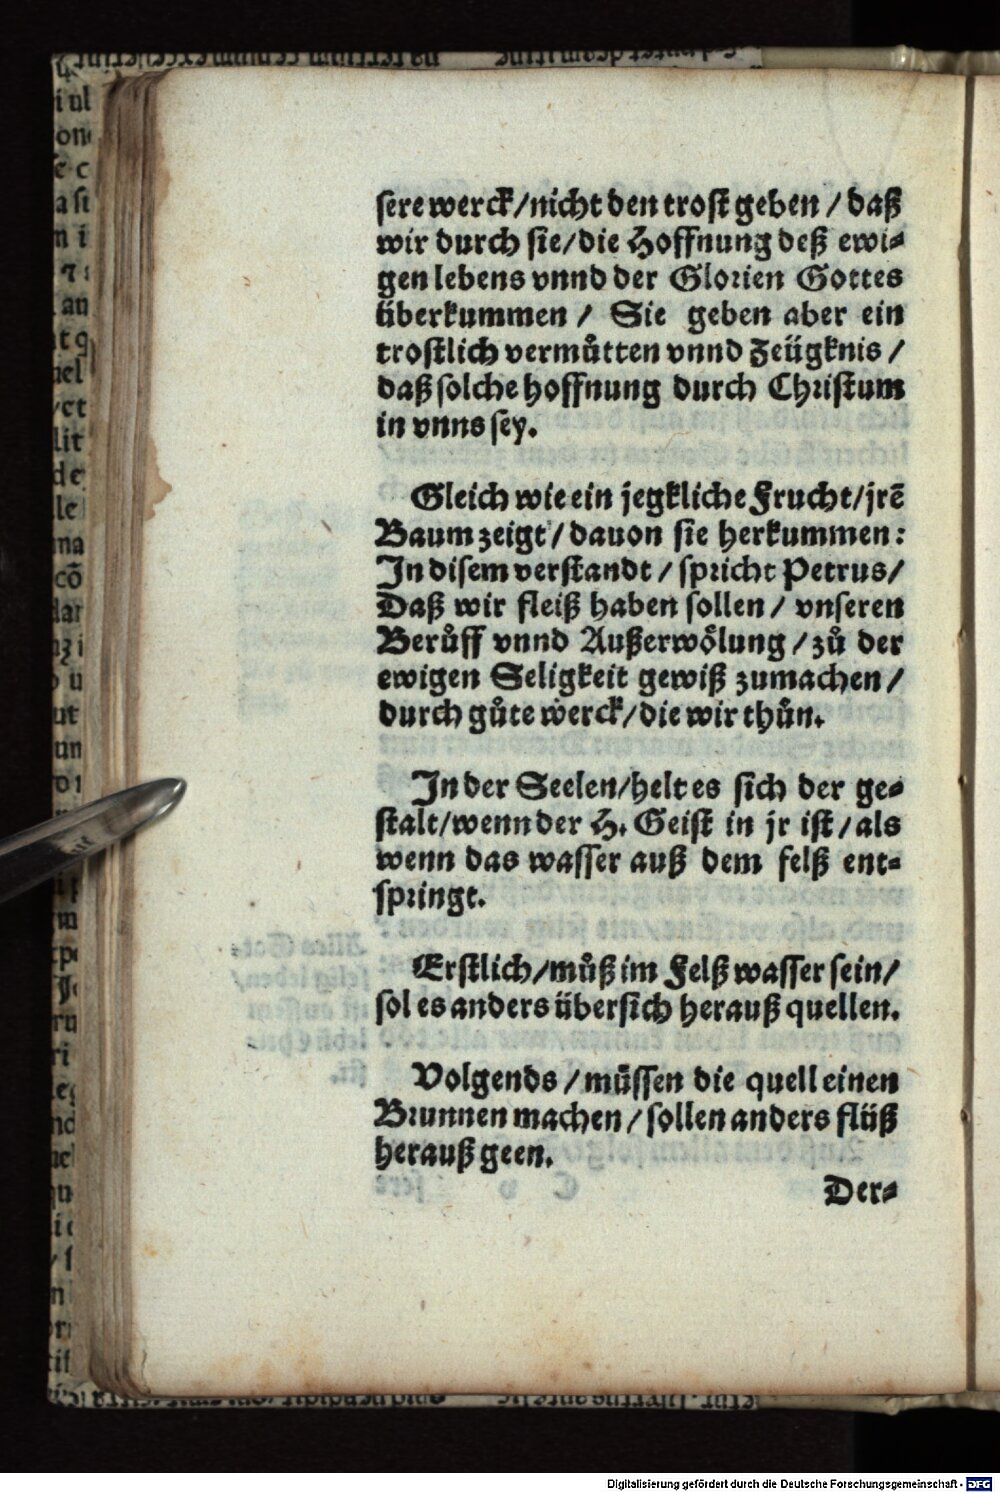 sere werck/nicht den trost geben / daß
wir durch sie/die Hoffnung deß ewi-
gen lebens vnnd der Glorien Gottes
überkummen / Sie geben aber ein
trostlich vermůtten vnnd Zeügknis /
daß solche hoffnung durch Christum
in vnns sey.
Gleich wie ein jegkliche Frucht/jrē
Baum zeigt / dauon sie herkummen:
In disem verstandt / spricht Petrus/
Daß wir fleiß haben sollen / vnseren
Berůff vnnd Außerwölung / zů der
ewigen Seligkeit gewiß zumachen /
durch gůte werck/die wir thůn.
In der Seelen/helt es sich der ge-
stalt/wenn der H. Geist in jr ist / als
wenn das wasser auß dem felß ent-
springt.
Erstlich/můß im Felß wasser sein/
sol es anders übersich herauß quellen.
Volgends / müssen die quell einen
Brunnen machen / sollen anders flüß
herauß geen.
Der-
Digitalisierung gefördert durch die Deutsche Forschungsgemeinschaft - DFG